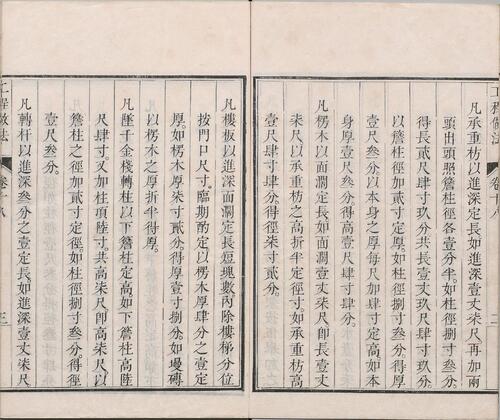 工程做法 卷十八 二
凡承重枋以進深定長如進深壹丈柒尺。再加兩
頭出頭照簷柱徑各壹分半。如柱徑捌寸叁分。
得長貳尺肆寸玖分。共長壹丈玖尺肆寸玖分
以簷柱徑加貳寸定厚。如柱徑捌寸叁分得厚
壹尺叁寸。以本身之厚每尺加肆寸定高。如本
身厚壹尺叁分。得高壹尺肆寸肆分。
凡楞木以面濶定長如面濶壹丈柒尺即長壹丈
柒尺以承重枋之高折半定徑寸。如承重枋高
壹尺肆寸肆分得徑柒寸貳分。
凡樓板以進深面濶定長短塊數內除樓梯分位
按門口尺寸。臨期酌定以楞木厚肆分之壹定
厚。如楞木厚柒寸貳分。得厚壹寸捌分。如墁磚
以楞木之厚折半得厚。
凡墜千金棧轉柱以下簷柱定高如下簷柱高陸
尺肆寸。又加柱頂陸寸。共高柒尺。即高柒尺以
簷柱之徑加貳寸定徑。如柱徑捌寸叁分。得徑
壹尺叁分。
凡轉杆以進深叁分之壹定長如進深壹丈柒尺
工程做法 卷十八 三